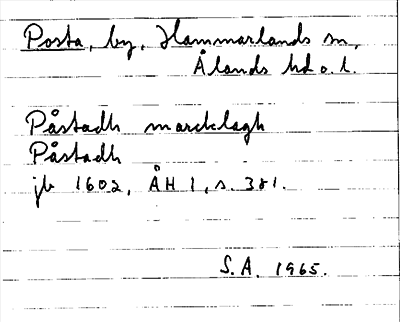 Posta, by, Hammarlands sn,
Ålands hd o. l.
Påstadh marcklagh
Påstadh
jb 1602, ÅH 1, s. 381.
S.A. 1965.